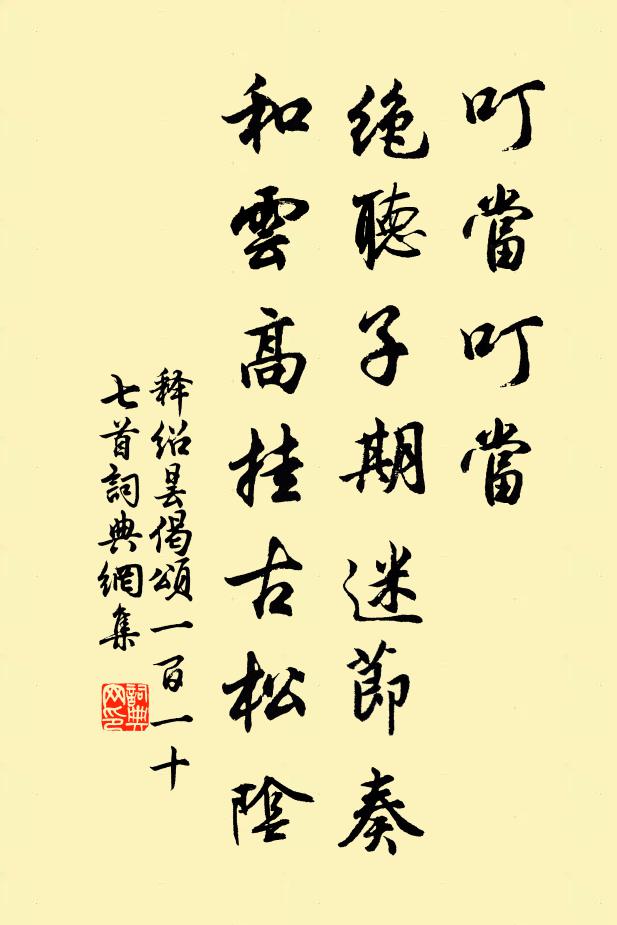 叮當叮當
絶聽子期迷節奏
和雲高挂古松陰
释绍昙偈頌一百一十
七首詞典網集
詞典网印